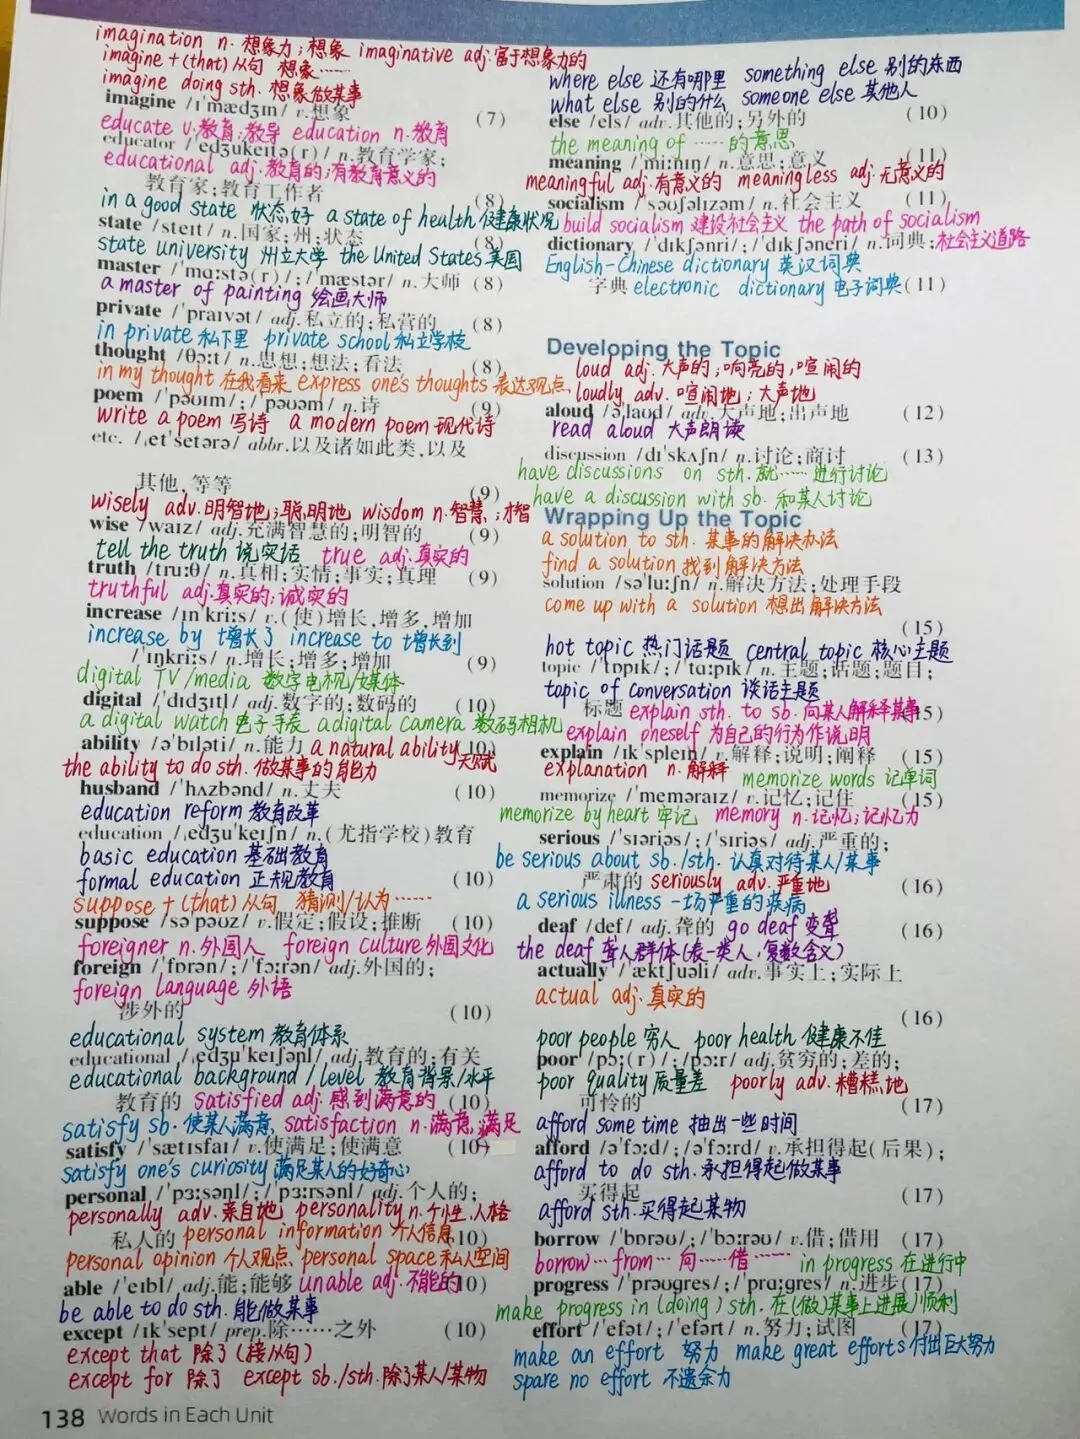 imagination n. 想象力；想象 imaginative adj. 富于想象力的
imagine + (that) 从句 想象……
imagine doing sth. 想象做某事
imagine /ɪˈmædʒɪn/ v.想象 (7)
educate v. 教育；教导 education n. 教育
educator /ˈedʒukeɪtə(r)/ n.教育学家；
educational adj. 教育的；有教育意义的
教育家；教育工作者 (8)
in a good state 状态好 a state of health 健康状况
state /steɪt/ n.国家；州；状态 (8)
state university 州立大学 the United States 美国
master /ˈmɑːstə(r)/；/ˈmæstər/ n.大师 (8)
a master of painting 绘画大师
private /ˈpraɪvət/ adj.私立的；私营的 (8)
in private 私下里 private school 私立学校
thought /θɔːt/ n.思想；想法；看法 (8)
in my thought 在我看来 express one's thoughts 表达观点
poem /ˈpəʊɪm/；/ˈpəʊəm/ n.诗 (9)
write a poem 写诗 a modern poem 现代诗
etc. /ˌetˈsetərə/ abbr.以及诸如此类，以及
其他，等等 (9)
wisely adv. 明智地；聪明地 wisdom n. 智慧；才智
wise /waɪz/ adj.充满智慧的；明智的 (9)
tell the truth 说实话 true adj. 真实的
truth /truːθ/ n.真相；实情；事实；真理 (9)
truthful adj. 真实的；诚实的
increase /ɪnˈkriːs/ v.(使)增长，增多，增加
increase by 增长了 increase to 增长到
/ˈɪŋkriːs/ n.增长；增多；增加 (9)
digital TV/media 数字电视/媒体
digital /ˈdɪdʒɪtl/ adj.数字的；数码的 (10)
a digital watch 电子手表 a digital camera 数码相机
ability /əˈbɪləti/ n.能力 a natural ability 天赋 (10)
the ability to do sth. 做某事的能力
husband /ˈhʌzbənd/ n.丈夫 (10)
education reform 教育改革
education /ˌedʒuˈkeɪʃn/ n.(尤指学校)教育
basic education 基础教育
formal education 正规教育 (10)
suppose + (that) 从句 猜测/认为……
suppose /səˈpəʊz/ v.假定；假设；推断 (10)
foreigner n. 外国人 foreign culture 外国文化
foreign /ˈfɒrən/；/ˈfɔːrən/ adj.外国的；
foreign language 外语
涉外的 (10)
educational system 教育体系
educational /ˌedʒuˈkeɪʃənl/ adj.教育的；有关
educational background/level 教育背景/水平
教育的 satisfied adj. 感到满意的 (10)
satisfy sb. 使某人满意 satisfaction n. 满意；满足
satisfy /ˈsætɪsfaɪ/ v.使满足；使满意 (10)
satisfy one's curiosity 满足某人的好奇心
personal /ˈpɜːsənl/；/ˈpɜːrsənl/ adj.个人的；
personally adv. 亲自地 personality n. 个性、人格
私人的 personal information 个人信息 (10)
personal opinion 个人观点、personal space 私人空间
able /ˈeɪbl/ adj.能；能够 unable adj. 不能的 (10)
be able to do sth. 能做某事
except /ɪkˈsept/ prep.除……之外 (10)
except that 除了(接从句)
except for 除了 except sb./sth. 除了某人/某物
138 Words in Each Unit
where else 还有哪里 something else 别的东西
what else 别的什么 someone else 其他人
else /els/ adv.其他的；另外的 (10)
the meaning of ……的意思
meaning /ˈmiːnɪŋ/ n.意思；意义 (11)
meaningful adj. 有意义的 meaningless adj. 无意义的
socialism /ˈsəʊʃəlɪzəm/ n.社会主义 (11)
build socialism 建设社会主义 the path of socialism
dictionary /ˈdɪkʃənri/；/ˈdɪkʃəneri/ n.词典； 社会主义道路
English-Chinese dictionary 英汉词典
字典 electronic dictionary 电子词典 (11)
Developing the Topic
loud adj. 大声的；响亮的，喧闹的
loudly adv. 喧闹地；大声地
aloud /əˈlaʊd/ adv.大声地；出声地 (12)
read aloud 大声朗读
discussion /dɪˈskʌʃn/ n.讨论；商讨 (13)
have discussions on sth. 就……进行讨论
have a discussion with sb. 和某人讨论
Wrapping Up the Topic
a solution to sth. 某事的解决办法
find a solution 找到解决方法
solution /səˈluːʃn/ n.解决方法；处理手段
come up with a solution 想出解决方法
(15)
hot topic 热门话题 central topic 核心主题
topic /ˈtɒpɪk/；/ˈtɑːpɪk/ n.主题；话题；题目；
topic of conversation 谈话主题
标题 explain sth. to sb. 向某人解释某事 (15)
explain oneself 为自己的行为作说明
explain /ɪkˈspleɪn/ v.解释；说明；阐释 (15)
explanation n. 解释 memorize words 记单词
memorize /ˈmeməraɪz/ v.记忆；记住 (15)
memorize by heart 牢记 memory n. 记忆；记忆力
serious /ˈsɪəriəs/；/ˈsɪriəs/ adj.严重的；
be serious about sb./sth. 认真对待某人/某事
严肃的 seriously adv. 严重地 (16)
a serious illness 一场严重的疾病
deaf /def/ adj.聋的 go deaf 变聋 (16)
the deaf 聋人群体(表一类人，复数含义)
actually /ˈæktʃuəli/ adv.事实上；实际上
actual adj. 真实的
(16)
poor people 穷人 poor health 健康不佳
poor /pɔː(r)/；/pɔːr/ adj.贫穷的；差的；
poor quality 质量差 poorly adv. 糟糕地
可怜的 (17)
afford some time 抽出一些时间
afford /əˈfɔːd/；/əˈfɔːrd/ v.承担得起(后果)；
afford to do sth. 承担得起做某事
买得起 (17)
afford sth. 买得起某物
borrow /ˈbɒrəʊ/；/ˈbɔːrəʊ/ v.借；借用 (17)
borrow … from … 向……借…… in progress 在进行中
progress /ˈprəʊɡres/；/ˈprɑːɡres/ n.进步 (17)
make progress in (doing) sth. 在(做)某事上进展顺利
effort /ˈefət/；/ˈefərt/ n.努力；试图 (17)
make an effort 努力 make great efforts 付出巨大努力
spare no effort 不遗余力